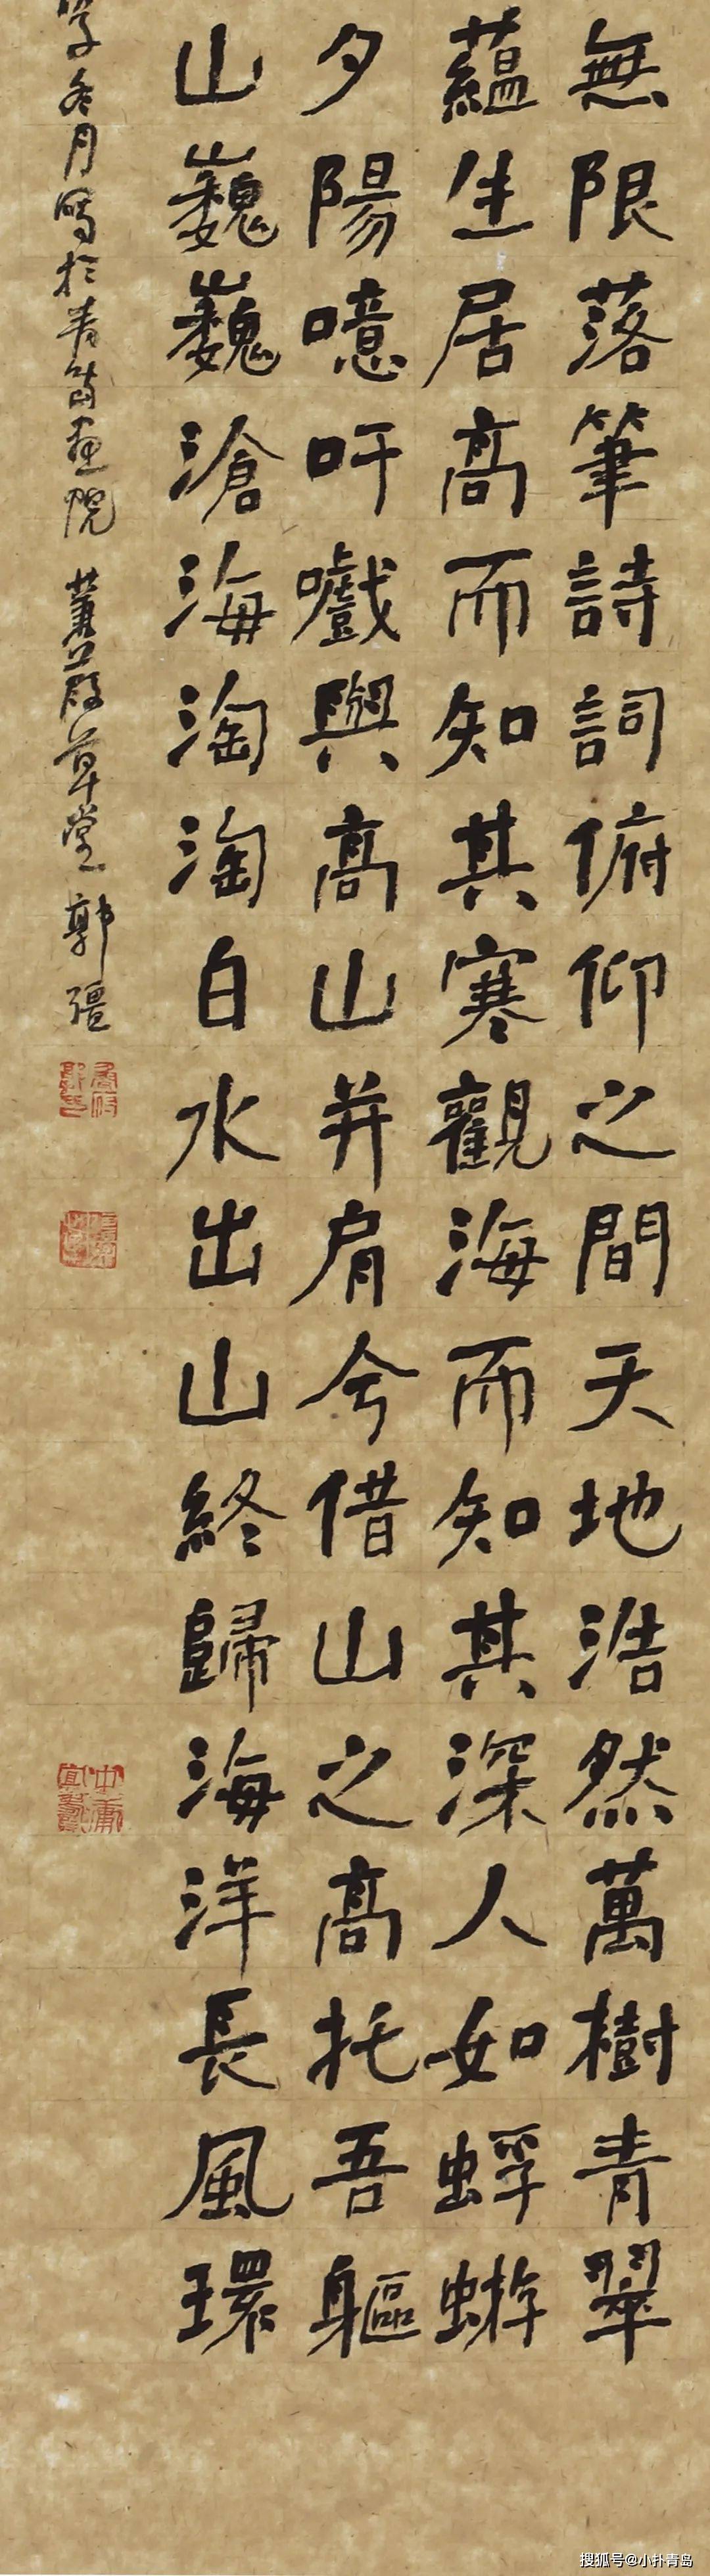 無限落筆詩詞俯仰之間天地浩然萬樹青翠
蘊生居高而知其寒觀海而知其深人如蜉蝣
夕陽噫吁嚱與高山并肩兮借山之高托吾軀
山巍巍滄海淘淘白水出山終歸海洋長風環
冬月 於青島畫院 蒹葭草堂 郭彊
搜狐号@小扑青岛